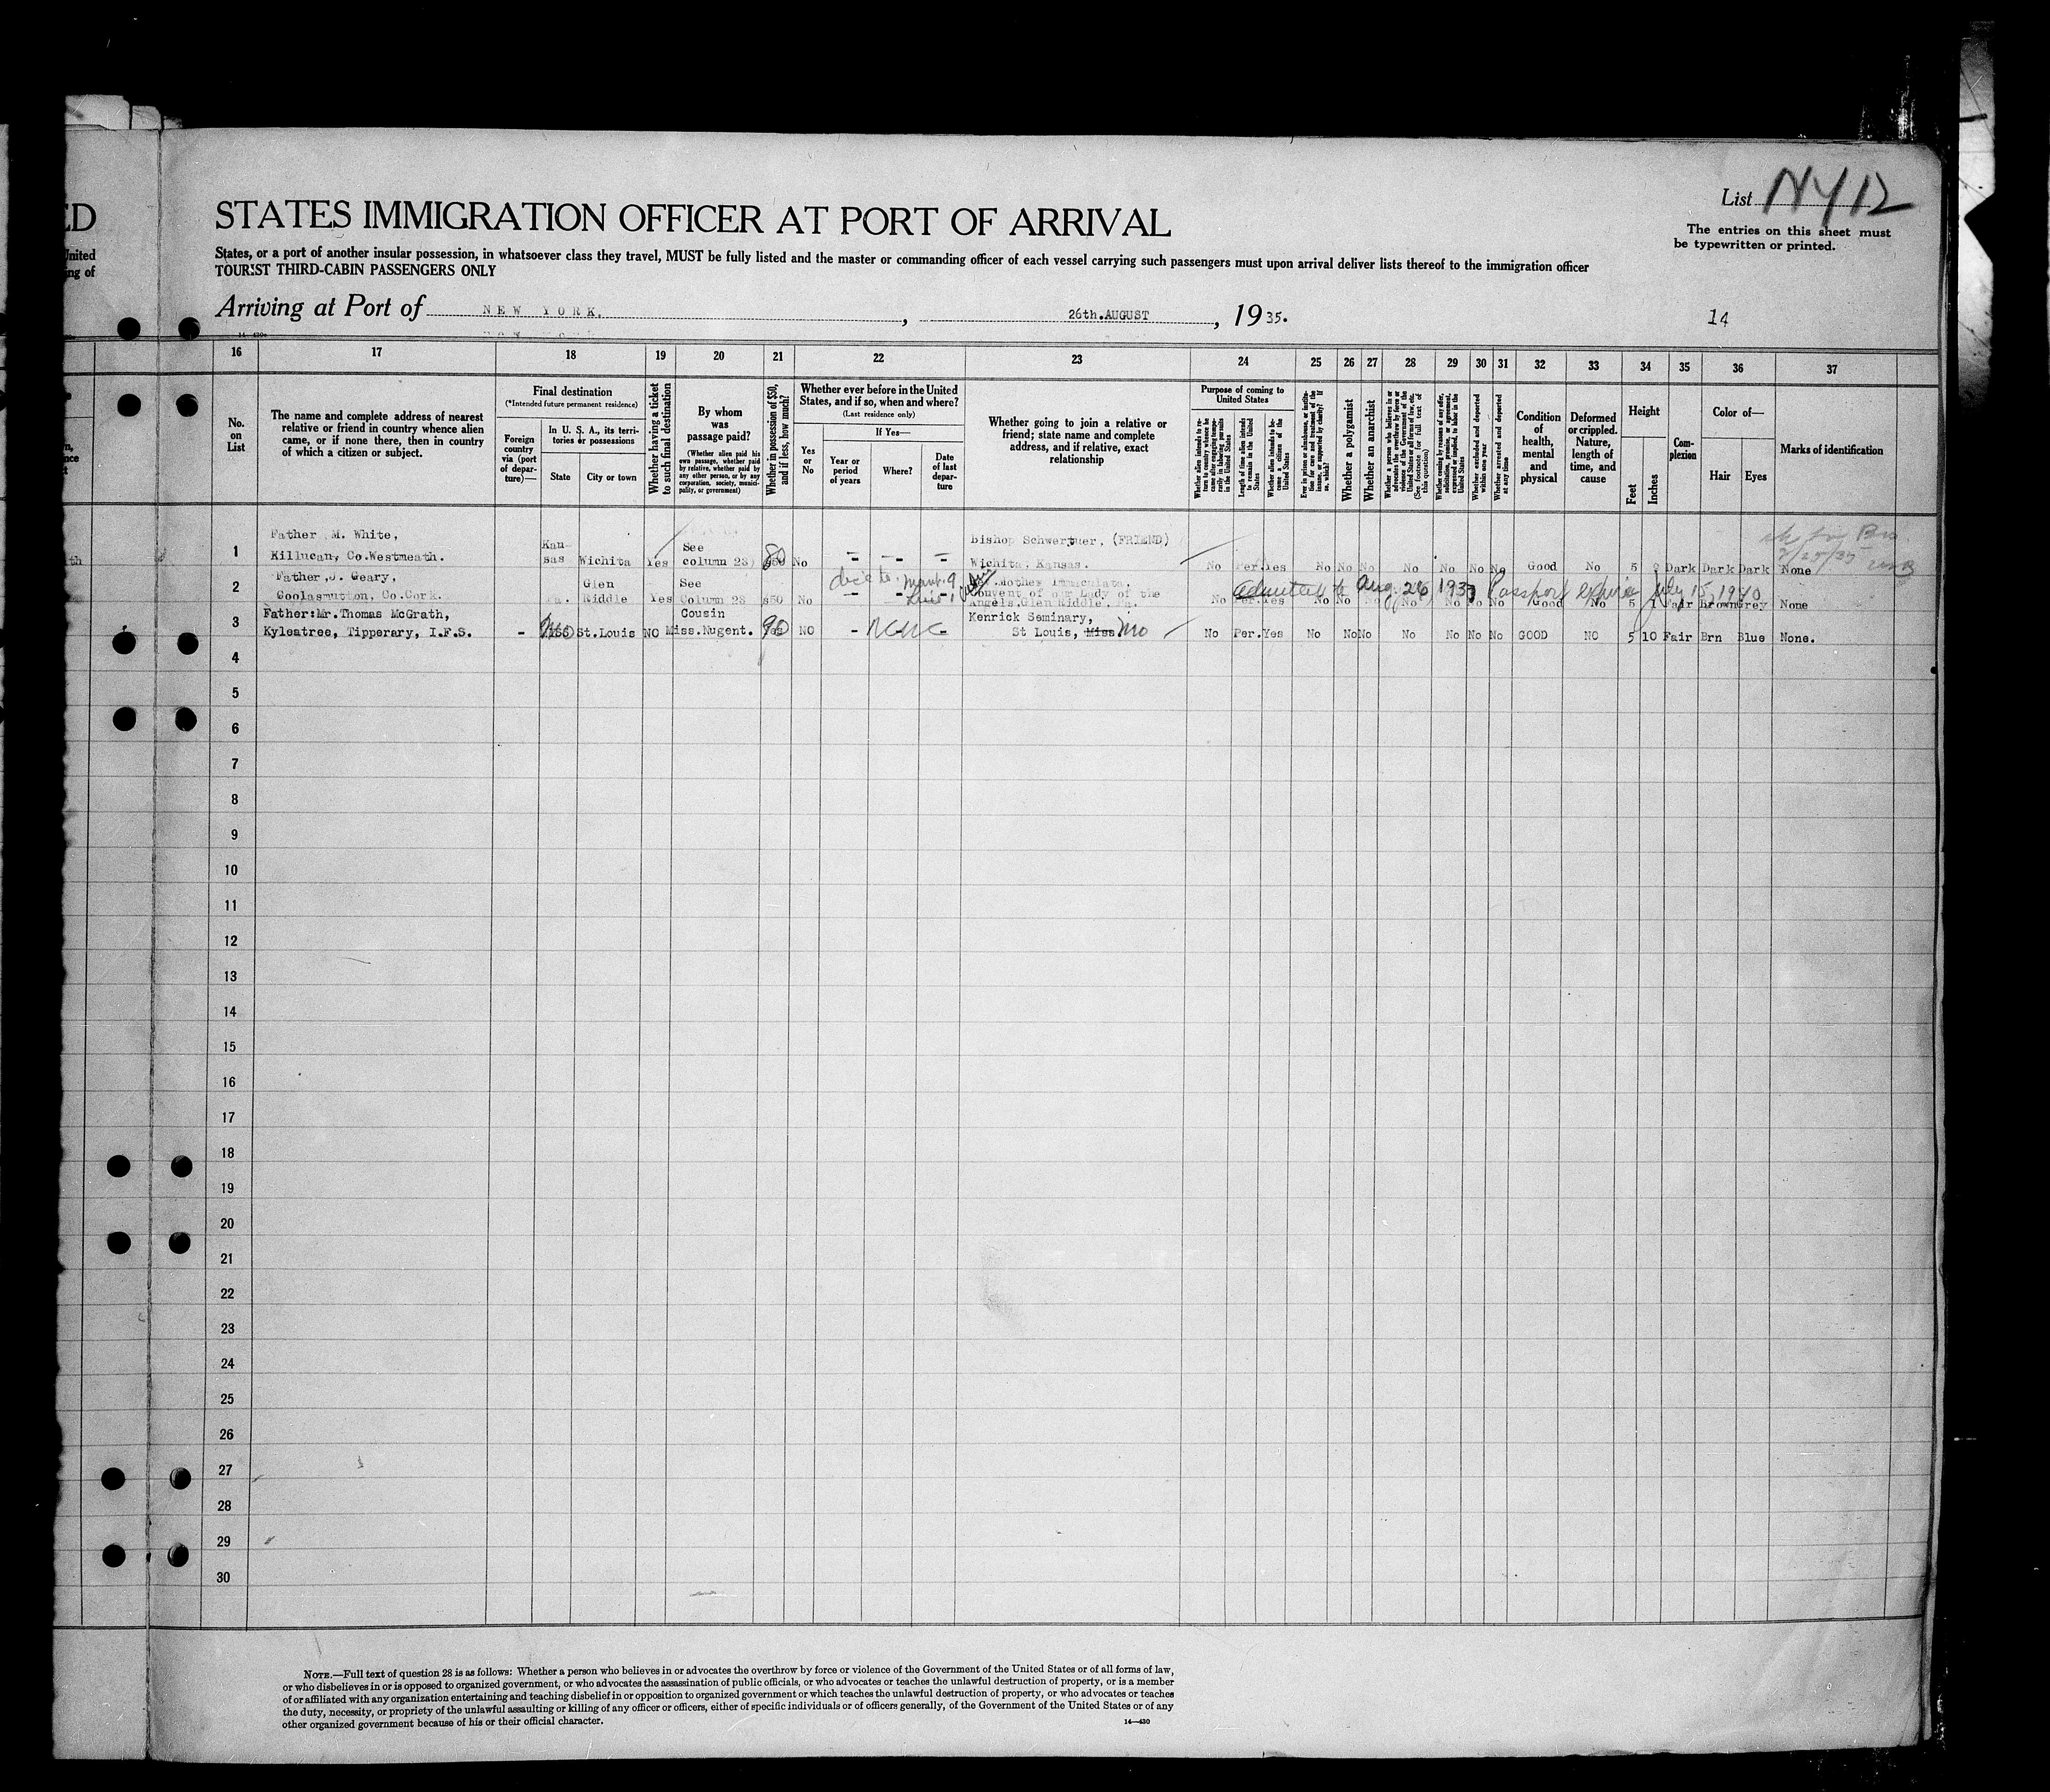 ED
United
ing of
List NY12
The entries on this sheet must
be typewritten or printed.
STATES IMMIGRATION OFFICER AT PORT OF ARRIVAL
States, or a port of another insular possession, in whatsoever class they travel, MUST be fully listed and the master or commanding officer of each vessel carrying such passengers must upon arrival deliver lists thereof to the immigration officer
TOURIST THIRD-CABIN PASSENGERS ONLY
Arriving at Port of NEW YORK, , 26th.AUGUST , 1935.
14
16 17 18 19 20 21 22 23 24 25 26 27 28 29 30 31 32 33 34 35 36 37
No. on List
The name and complete address of nearest
relative or friend in country whence alien
came, or if none there, then in country
of which a citizen or subject.
Final destination
(*Intended future permanent residence)
Foreign
country
via (port
of depar-
ture)—
In U. S. A., its terri-
tories or possessions
State
City or town
Whether having a ticket
to such final destination
By whom
was
passage paid?
(Whether alien paid his
own passage, whether paid
by relative, whether paid by
any other person, or by any
corporation, society, munici-
pality, or government)
Whether in possession of $50,
and if less, how much?
Whether ever before in the United
States, and if so, when and where?
(Last residence only)
Yes
or
No
If Yes—
Year or
period
of years
Where?
Date
of last
depar-
ture
Whether going to join a relative or
friend; state name and complete
address, and if relative, exact
relationship
Purpose of coming to
United States
Whether alien intends to re-
turn to country whence he
came after engaging tempo-
rarily in laboring pursuits
in the United States
Length of time alien intends
to remain in the United
States
Whether alien intends to be-
come a citizen of the
United States
Ever in prison or almshouse, or institu-
tion for care and treatment of the
insane, or supported by charity? If
so, which?
Whether a polygamist
Whether an anarchist
Whether a person who believes in or
advocates the overthrow by force or
violence of the Government of the
United States or all forms of law, etc.
(See footnote for full text of
this question)
Whether coming by reason of any offer,
solicitation, promise, or agreement,
expressed or implied, to labor in the
United States
Whether excluded and deported
within one year
Whether arrested and deported
at any time
Condition
of
health,
mental
and
physical
Deformed
or crippled.
Nature,
length of
time, and
cause
Height
Feet
Inches
Com-
plexion
Color of—
Hair
Eyes
Marks of identification
Father M. White,
Kan-
See
Bishop Schwertuer, (FRIEND)
1 Killucan, Co.Westmeath. sas Wichita Yes column 23) $50 80 No – – – Wichita, Kansas. No Per. Yes No No No No No No No Good No 5 Dark Dark Dark None
Father, J. Geary,
Glen
See
Mother Immaculata,
2 Coolasmutton, Co.Cork. Pa. Riddle Yes Column 23 $50 No – – – Convent of our Lady of the
Angels.Glen Riddle, Pa. No Per. Yes No No No No No No No Good No 5 1 Fair Brown Grey None
admitted to Aug. 26 1937 Passport expires July 15, 1940
Father:Mr.Thomas McGrath,
Cousin
Kenrick Seminary,
3 Kyleatree, Tipperary, I.F.S. - Mo St.Louis NO Miss.Nugent. 90 NO - St Louis, Miss Mo No Per. Yes No No No No No No No GOOD NO 5 10 Fair Brn Blue None.
4
5
6
7
8
9
10
11
12
13
14
15
16
17
18
19
20
21
22
23
24
25
26
27
28
29
30
NOTE.—Full text of question 28 is as follows: Whether a person who believes in or advocates the overthrow by force or violence of the Government of the United States or of all forms of law,
or who disbelieves in or is opposed to organized government, or who advocates the assassination of public officials, or who advocates or teaches the unlawful destruction of property, or is a member
of or affiliated with any organization entertaining and teaching disbelief in or opposition to organized government or which teaches the unlawful destruction of property, or who advocates or teaches
the duty, necessity, or propriety of the unlawful assaulting or killing of any officer or officers, either of specific individuals or of officers generally, of the Government of the United States or of any
other organized government because of his or their official character.
14—430